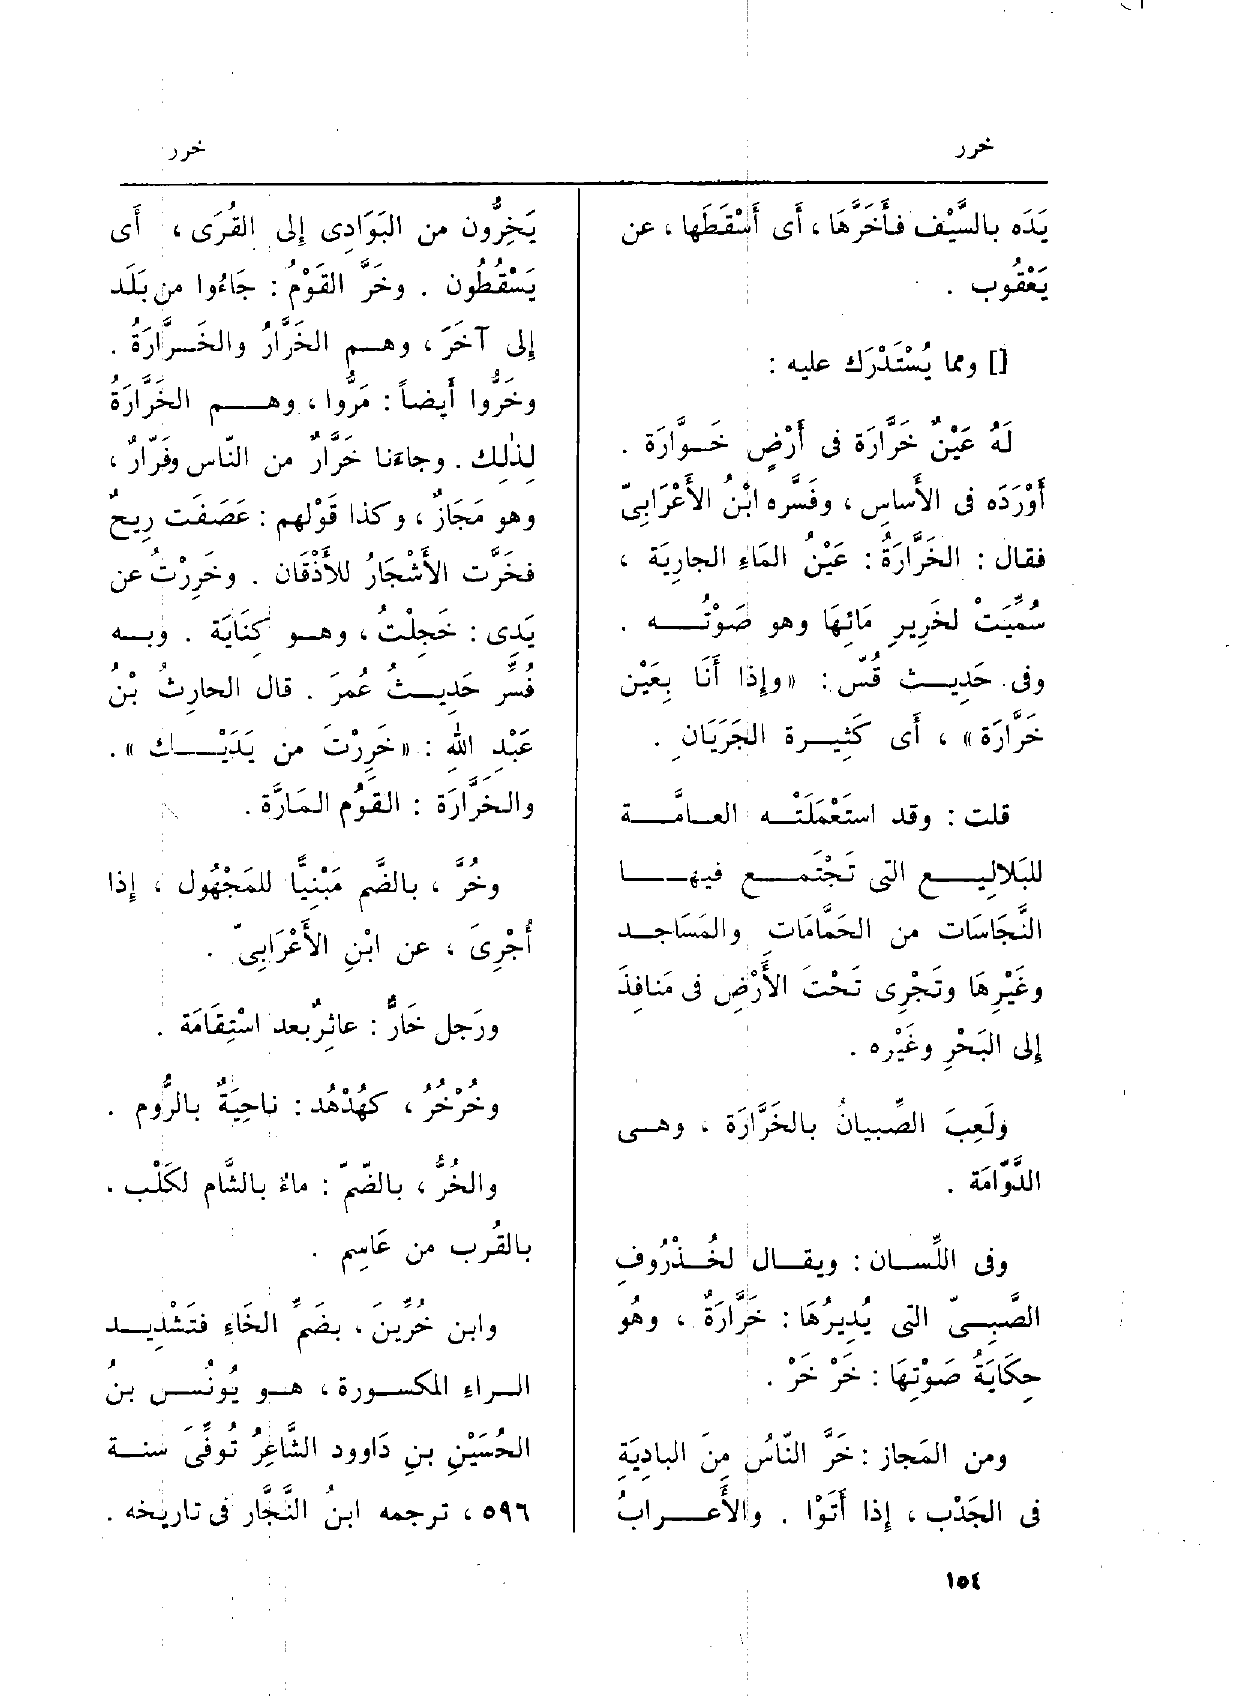 خرر
خرر
يَدَه بالسَّيْف فأَخَرَّهَا ، أَى أَسْقَطَها ، عن
يَعْقُوب .
[] ومما يُسْتَدْرَك عليه :
لَهُ عَيْنٌ خَرَّارَة فى أَرْضٍ خَوّارَة .
أَوْرَدَه فى الأَساسِ ، وفَسَّره ابْنُ الأَعْرَابِىّ
فقال : الخَرَّارَةُ : عَيْنُ المَاءِ الجارِيَة ،
سُمِّيَتْ لخَرِيرِ مَائِهَا وهو صَوْتُه .
وفى حَدِيث قُسّ : «وإِذا أَنَا بِعَيْن
خَرَّارَة» ، أَى كَثِيرة الجَرَيَانِ .
قلت : وقد استَعْمَلَتْه العامَّة
للبَلالِيع التى تَجْتَمع فيها
النَّجَاسَات من الحَمَّامَاتِ والمَسَاجِد
وغَيْرِهَا وتَجْرِى تَحْتَ الأَرْضِ فى مَنافِذَ
إِلى البَحْرِ وغَيْره .
ولَعِبَ الصِّبيانُ بالخَرَّارَة ، وهى
الدَّوَّامَة .
وفى اللِّسان : ويقال لخُذْرُوفِ
الصَّبِىّ التى يُدِيرُهَا : خَرَّارَةٌ ، وهُو
حِكَايَةُ صَوْتِهَا : خَرْ خَرْ .
ومن المَجاز : خَرَّ النّاسُ مِنَ البادِيَةِ
فى الجَدْبِ ، إِذا أَتَوْا . والأَعرابُ
يَخِرُّون من البَوَادِى إِلى القُرَى ، أَى
يَسْقُطُون . وخَرَّ القَوْمُ : جَاءُوا من بَلَد
إِلى آخَرَ ، وهم الخَرَّارُ والخَرَّارَةُ .
وخَرُّوا أَيضاً : مَرُّوا ، وهم الخَرَّارَةُ
لِذٰلِك . وجاءَنا خَرَّارٌ من النّاس وفَرّارٌ ،
وهو مَجَازٌ ، وكذا قَوْلهم : عَصَفَت رِيحٌ
فخَرَّت الأَشْجَارُ للأَذْقَان . وخَرِرْتُ عن
يَدِى : خَجِلْتُ ، وهو كِنَايَة . وبه
فُسِّر حَدِيثُ عُمرَ . قال الحارِثُ بْنُ
عَبْدِ اللهِ : «خَرِرْتَ من يَدَيْك» .
والخَرَّارَة : القَوْم المَارَّة .
وخُرَّ ، بالضَّم مَبْنِيًّا للمَجْهُول ، إِذا
أُجْرِىَ ، عن ابْنِ الأَعْرَابِىّ .
ورَجل خَارٌّ : عاثِرٌ بعد اسْتِقَامَة .
وخُرْخُرُ ، كهُدْهُد : ناحِيَةٌ بالرُّوم .
والخُرُّ ، بالضّمّ : ماءٌ بالشَّام لكَلْب .
بالقُرب من عَاسِم .
وابن خُرِّينَ ، بضَمّ الخَاءِ فتَشْدِيد
الراءِ المكسورة ، هو يُونُس بنُ
الحُسَيْنِ بنِ دَاوود الشَّاعِرُ تُوفِّىَ سنة
٥٩٦ ، ترجمه ابنُ النَّجَّار فى تاريخه .
١٥٤